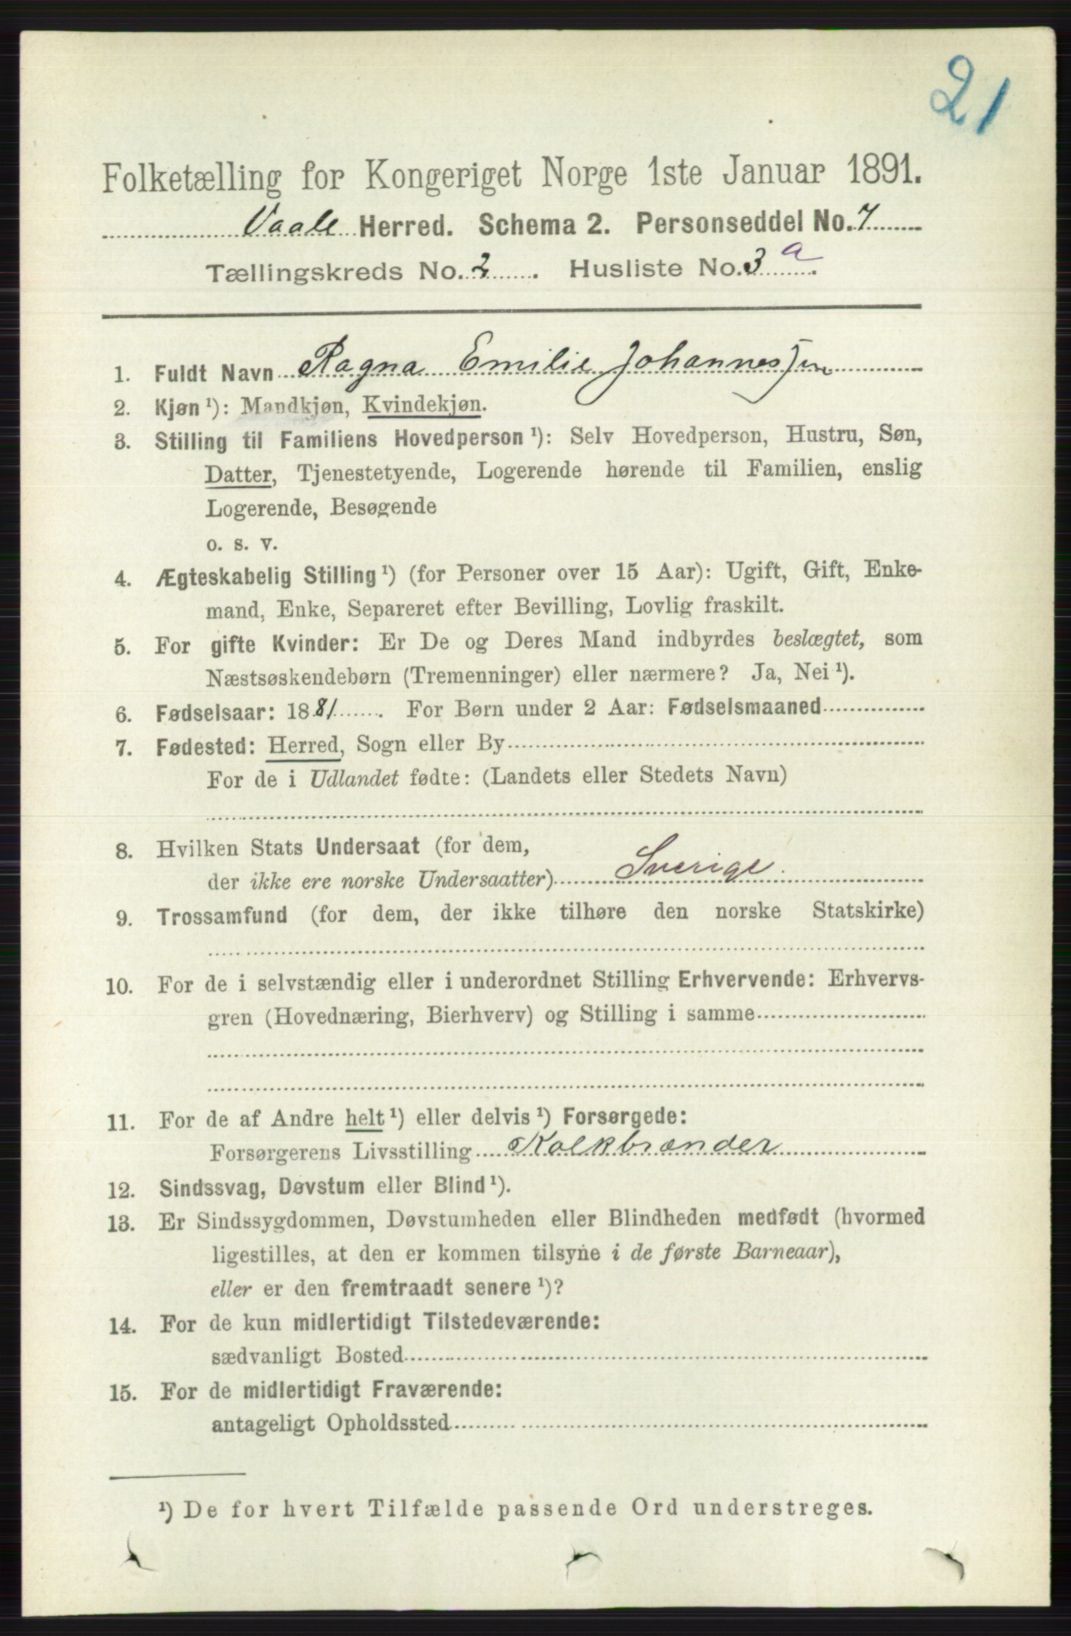 21
Folketælling for Kongeriget Norge 1ste Januar 1891.
Vaale Herred. Schema 2. Personseddel No. 7
Tællingskreds No. 2. Husliste No. 3 a.
1. Fuldt Navn Ragna Emilie Johannessen
2. Kjøn ¹): Mandkjøn, Kvindekjøn.
3. Stilling til Familiens Hovedperson ¹): Selv Hovedperson, Hustru, Søn,
Datter, Tjenestetyende, Logerende hørende til Familien, enslig
Logerende, Besøgende
o. s. v.
4. Ægteskabelig Stilling ¹) (for Personer over 15 Aar): Ugift, Gift, Enke-
mand, Enke, Separeret efter Bevilling, Lovlig fraskilt.
5. For gifte Kvinder: Er De og Deres Mand indbyrdes beslægtet, som
Næstsøskendebørn (Tremenninger) eller nærmere? Ja, Nei ¹).
6. Fødselsaar: 1881. For Børn under 2 Aar: Fødselsmaaned
7. Fødested: Herred, Sogn eller By
For de i Udlandet fødte: (Landets eller Stedets Navn)
8. Hvilken Stats Undersaat (for dem,
der ikke ere norske Undersaatter) Sverige.
9. Trossamfund (for dem, der ikke tilhøre den norske Statskirke)
10. For de i selvstændig eller i underordnet Stilling Erhvervende: Erhvervs-
gren (Hovednæring, Bierhverv) og Stilling i samme
11. For de af Andre helt ¹) eller delvis ¹) Forsørgede:
Forsørgerens Livsstilling Kalkbrænder
12. Sindssvag, Døvstum eller Blind ¹).
13. Er Sindssygdommen, Døvstumheden eller Blindheden medfødt (hvormed
ligestilles, at den er kommen tilsyne i de første Barneaar),
eller er den fremtraadt senere ¹)?
14. For de kun midlertidigt Tilstedeværende:
sædvanligt Bosted
15. For de midlertidigt Fraværende:
antageligt Opholdssted
¹) De for hvert Tilfælde passende Ord understreges.